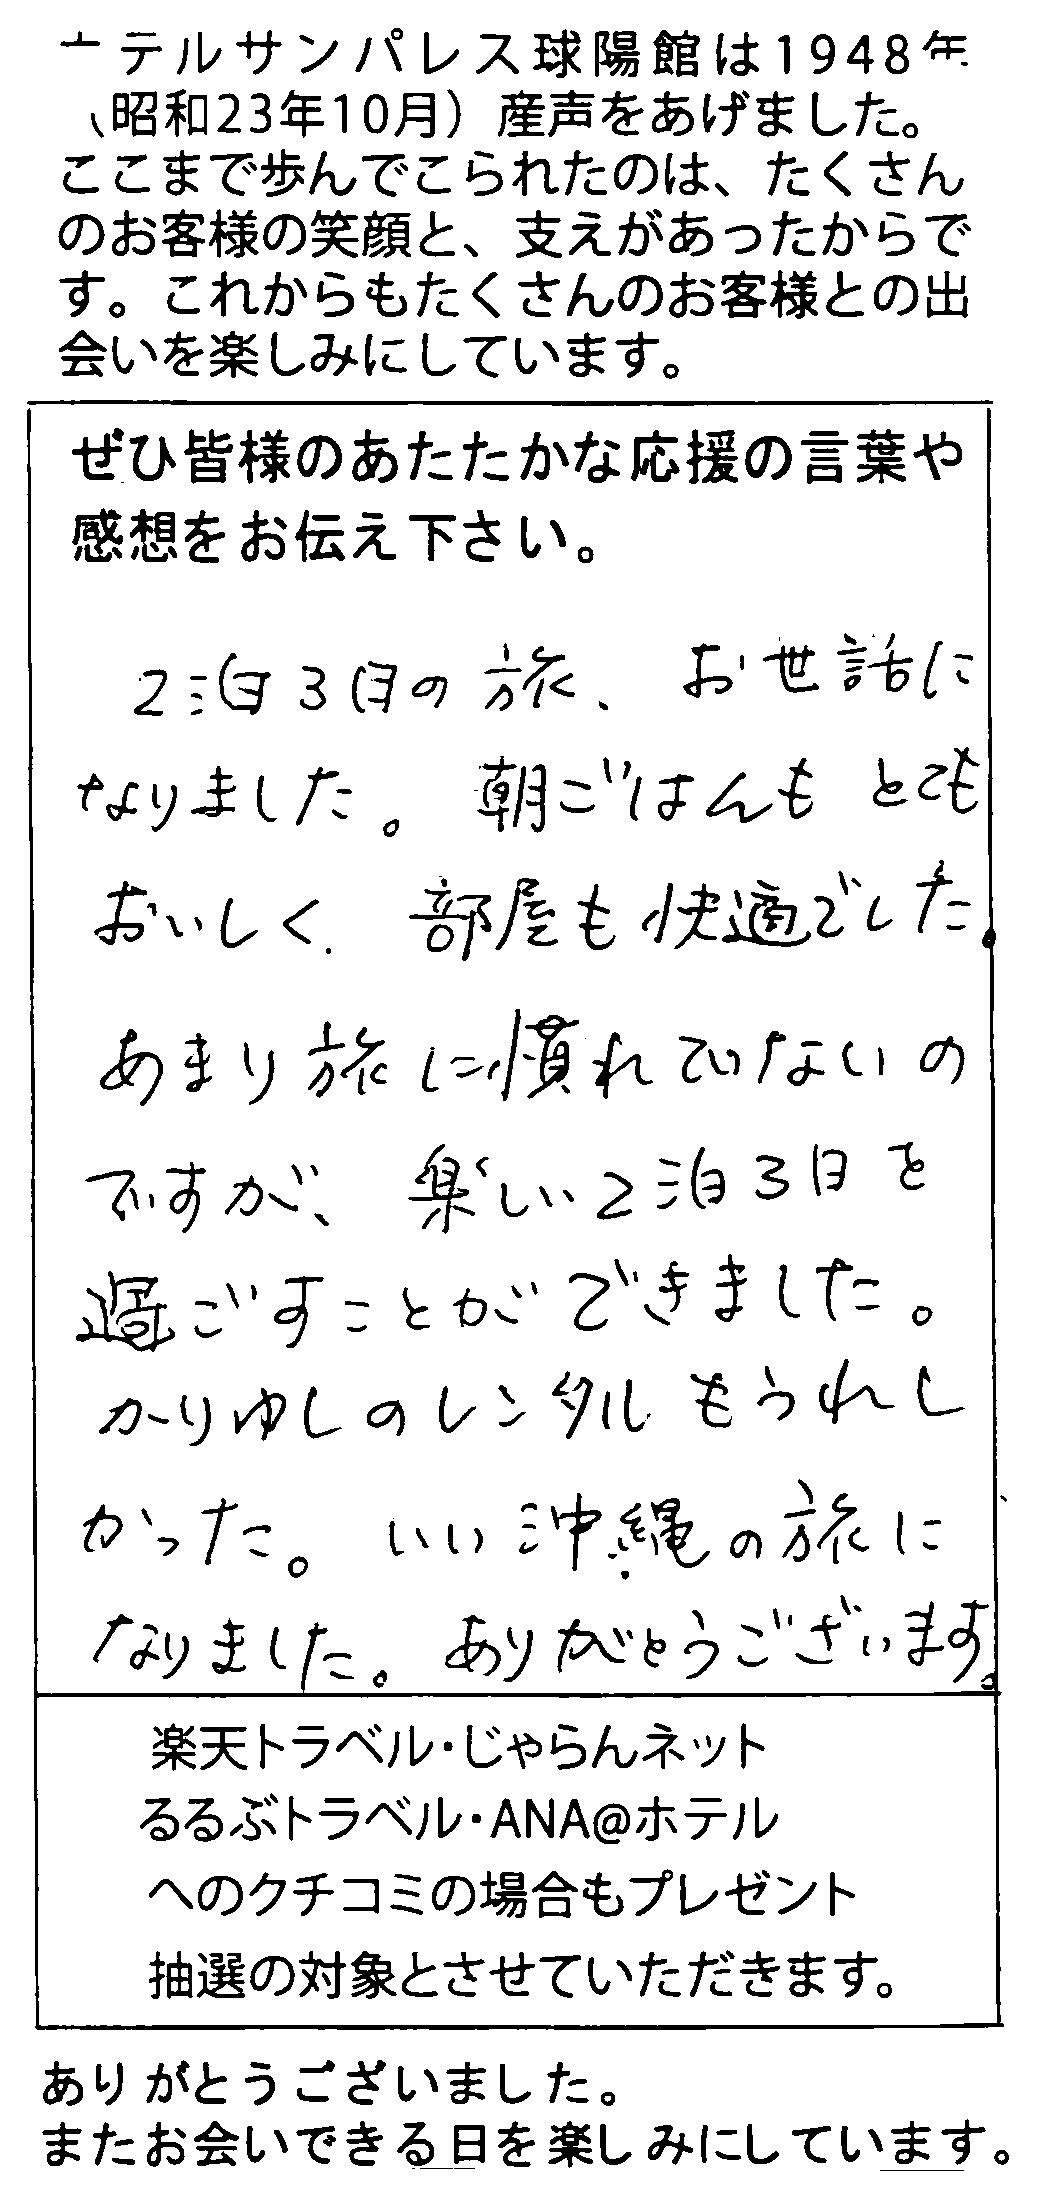 ホテルサンパレス球陽館は1948年
（昭和23年10月）産声をあげました。
ここまで歩んでこられたのは、たくさん
のお客様の笑顔と、支えがあったからで
す。これからもたくさんのお客様との出
会いを楽しみにしています。
ぜひ皆様のあたたかな応援の言葉や
感想をお伝え下さい。
2泊3日の旅、お世話に
なりました。朝ごはんもとても
おいしく、部屋も快適でした。
あまり旅に慣れていないの
ですが、楽しい2泊3日を
過ごすことができました。
かりゆしのレンタルもうれし
かった。いい沖縄の旅に
なりました。ありがとうございます。
楽天トラベル・じゃらんネット
るるぶトラベル・ANA@ホテル
へのクチコミの場合もプレゼント
抽選の対象とさせていただきます。
ありがとうございました。
またお会いできる日を楽しみにしています。